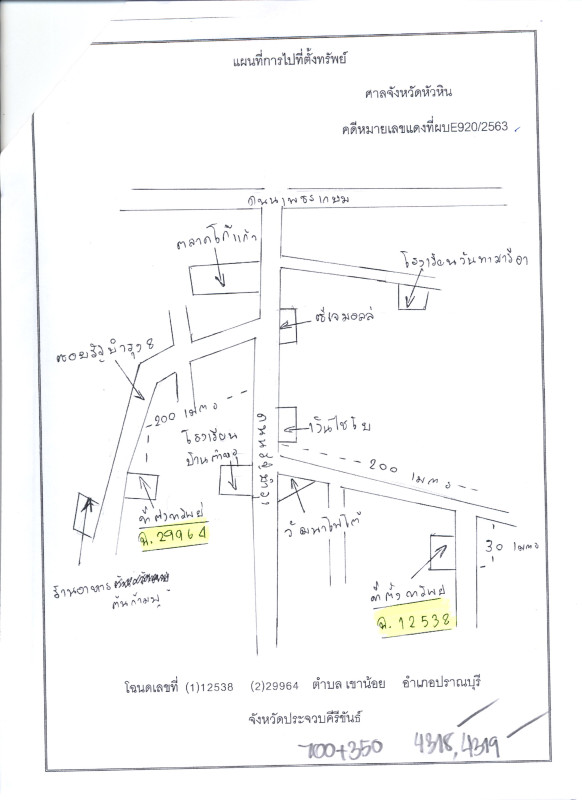 แผนที่การไปที่ตั้งทรัพย์
ศาลจังหวัดหัวหิน
คดีหมายเลขแดงที่ผบE920/2563
ถนนเพชรเกษม
ตลาดโก้แก้ว
โรงเรียนวันทามารีอา
ซีเจมอลล์
ซอยรัฐบำรุง 8
200 เมตร
โรงเรียน
บ้าน
ถนนรัฐบำรุง
200 เมตร
วัฒนาไฟโต้
30 เมตร
ที่ตั้งทรัพย์
ฉ. 29964
ร้านอาหาร
ต้นก้ามปู
ที่ตั้งทรัพย์
ฉ. 12538
โฉนดเลขที่ (1)12538 (2)29964 ตำบล เขาน้อย อำเภอปราณบุรี
จังหวัดประจวบคีรีขันธ์
700+350 4318, 4319